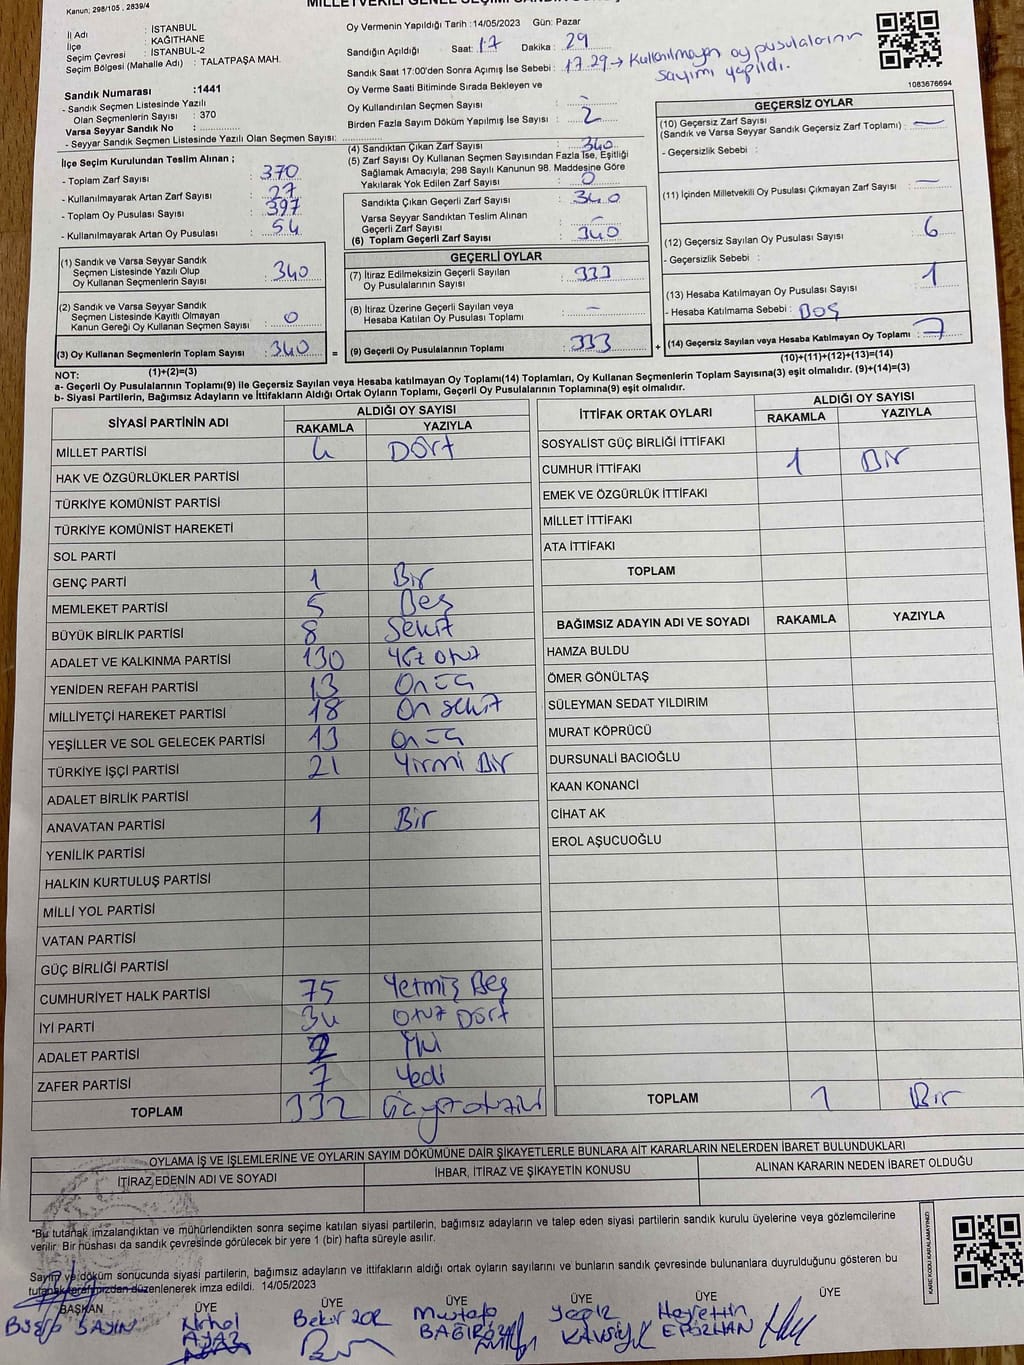 Kanun; 298/105 , 2839/4
İl Adı : İSTANBUL
İlçe : KAĞITHANE
Seçim Çevresi : İSTANBUL-2
Seçim Bölgesi (Mahalle Adı) : TALATPAŞA MAH.
Sandık Numarası :1441
- Sandık Seçmen Listesinde Yazılı
Olan Seçmenlerin Sayısı : 370
Varsa Seyyar Sandık No :
- Seyyar Sandık Seçmen Listesinde Yazılı Olan Seçmen Sayısı:
İlçe Seçim Kurulundan Teslim Alınan ;
- Toplam Zarf Sayısı : 370
- Kullanılmayarak Artan Zarf Sayısı : 27
- Toplam Oy Pusulası Sayısı : 397
- Kullanılmayarak Artan Oy Pusulası : 54
(1) Sandık ve Varsa Seyyar Sandık
Seçmen Listesinde Yazılı Olup
Oy Kullanan Seçmenlerin Sayısı : 340
(2) Sandık ve Varsa Seyyar Sandık
Seçmen Listesinde Kayıtlı Olmayan
Kanun Gereği Oy Kullanan Seçmen Sayısı : 0
(3) Oy Kullanan Seçmenlerin Toplam Sayısı : 340 =
(1)+(2)=(3)
Oy Vermenin Yapıldığı Tarih :14/05/2023 Gün: Pazar
Sandığın Açıldığı Saat: 17 Dakika : 29
Sandık Saat 17:00'den Sonra Açımış İse Sebebi : 17.29 → Kullanılmayan oy pusulalarının
sayımı yapıldı.
Oy Verme Saati Bitiminde Sırada Bekleyen ve
Oy Kullandırılan Seçmen Sayısı : -
Birden Fazla Sayım Döküm Yapılmış İse Sayısı : 2
(4) Sandıktan Çıkan Zarf Sayısı : 340
(5) Zarf Sayısı Oy Kullanan Seçmen Sayısından Fazla İse, Eşitliği
Sağlamak Amacıyla; 298 Sayılı Kanunun 98. Maddesine Göre
Yakılarak Yok Edilen Zarf Sayısı : 0
Sandıkta Çıkan Geçerli Zarf Sayısı : 340
Varsa Seyyar Sandıktan Teslim Alınan
Geçerli Zarf Sayısı : -
(6) Toplam Geçerli Zarf Sayısı : 340
GEÇERLİ OYLAR
(7) İtiraz Edilmeksizin Geçerli Sayılan
Oy Pusulalarının Sayısı : 333
(8) İtiraz Üzerine Geçerli Sayılan veya
Hesaba Katılan Oy Pusulası Toplamı : -
(9) Geçerli Oy Pusulalarının Toplamı : 333 +
1083676694
GEÇERSİZ OYLAR
(10) Geçersiz Zarf Sayısı
(Sandık ve Varsa Seyyar Sandık Geçersiz Zarf Toplamı) : -
- Geçersizlik Sebebi :
(11) İçinden Milletvekili Oy Pusulası Çıkmayan Zarf Sayısı : -
(12) Geçersiz Sayılan Oy Pusulası Sayısı : 6
- Geçersizlik Sebebi :
(13) Hesaba Katılmayan Oy Pusulası Sayısı : 1
- Hesaba Katılmama Sebebi : Boş
(14) Geçersiz Sayılan veya Hesaba Katılmayan Oy Toplamı : 7
(10)+(11)+(12)+(13)=(14)
NOT:
a- Geçerli Oy Pusulalarının Toplamı(9) ile Geçersiz Sayılan veya Hesaba katılmayan Oy Toplamı(14) Toplamları, Oy Kullanan Seçmenlerin Toplam Sayısına(3) eşit olmalıdır. (9)+(14)=(3)
b- Siyasi Partilerin, Bağımsız Adayların ve İttifakların Aldığı Ortak Oyların Toplamı, Geçerli Oy Pusulalarının Toplamına(9) eşit olmalıdır.
SİYASİ PARTİNİN ADI
ALDIĞI OY SAYISI
RAKAMLA YAZIYLA
MİLLET PARTİSİ 4 Dört
HAK VE ÖZGÜRLÜKLER PARTİSİ
TÜRKİYE KOMÜNİST PARTİSİ
TÜRKİYE KOMÜNİST HAREKETİ
SOL PARTİ
GENÇ PARTİ 1 Bir
MEMLEKET PARTİSİ 5 Beş
BÜYÜK BİRLİK PARTİSİ 8 Sekiz
ADALET VE KALKINMA PARTİSİ 130 Yüz otuz
YENİDEN REFAH PARTİSİ 13 On üç
MİLLİYETÇİ HAREKET PARTİSİ 18 On sekiz
YEŞİLLER VE SOL GELECEK PARTİSİ 13 On üç
TÜRKİYE İŞÇİ PARTİSİ 21 Yirmi Bir
ADALET BİRLİK PARTİSİ
ANAVATAN PARTİSİ 1 Bir
YENİLİK PARTİSİ
HALKIN KURTULUŞ PARTİSİ
MİLLİ YOL PARTİSİ
VATAN PARTİSİ
GÜÇ BİRLİĞİ PARTİSİ
CUMHURİYET HALK PARTİSİ 75 Yetmiş Beş
İYİ PARTİ 34 Otuz Dört
ADALET PARTİSİ 2 İki
ZAFER PARTİSİ 7 Yedi
TOPLAM 332
İTTİFAK ORTAK OYLARI
ALDIĞI OY SAYISI
RAKAMLA YAZIYLA
SOSYALİST GÜÇ BİRLİĞİ İTTİFAKI
CUMHUR İTTİFAKI 1 Bir
EMEK VE ÖZGÜRLÜK İTTİFAKI
MİLLET İTTİFAKI
ATA İTTİFAKI
TOPLAM
BAĞIMSIZ ADAYIN ADI VE SOYADI RAKAMLA YAZIYLA
HAMZA BULDU
ÖMER GÖNÜLTAŞ
SÜLEYMAN SEDAT YILDIRIM
MURAT KÖPRÜCÜ
DURSUNALİ BACIOĞLU
KAAN KONANCİ
CİHAT AK
EROL AŞUCUOĞLU
TOPLAM 1 Bir
OYLAMA İŞ VE İŞLEMLERİNE VE OYLARIN SAYIM DÖKÜMÜNE DAİR ŞİKAYETLERLE BUNLARA AİT KARARLARIN NELERDEN İBARET BULUNDUKLARI
İTİRAZ EDENİN ADI VE SOYADI İHBAR, İTİRAZ VE ŞİKAYETİN KONUSU ALINAN KARARIN NEDEN İBARET OLDUĞU
*Bu tutanak imzalandıktan ve mühürlendikten sonra seçime katılan siyasi partilerin, bağımsız adayların ve talep eden siyasi partilerin sandık kurulu üyelerine veya gözlemcilerine
verilir. Bir nüshası da sandık çevresinde görülecek bir yere 1 (bir) hafta süreyle asılır.
Sayım ve döküm sonucunda siyasi partilerin, bağımsız adayların ve ittifakların aldığı ortak oyların sayılarını ve bunların sandık çevresinde bulunanlara duyrulduğunu gösteren bu
tutanak tarafımızdan düzenlenerek imza edildi. 14/05/2023
KARE KODU KARALAMAYINIZ!
BAŞKAN ÜYE ÜYE ÜYE ÜYE ÜYE ÜYE
SAYIN AYAZ Bekir ZOR Mustafa Hayrettin